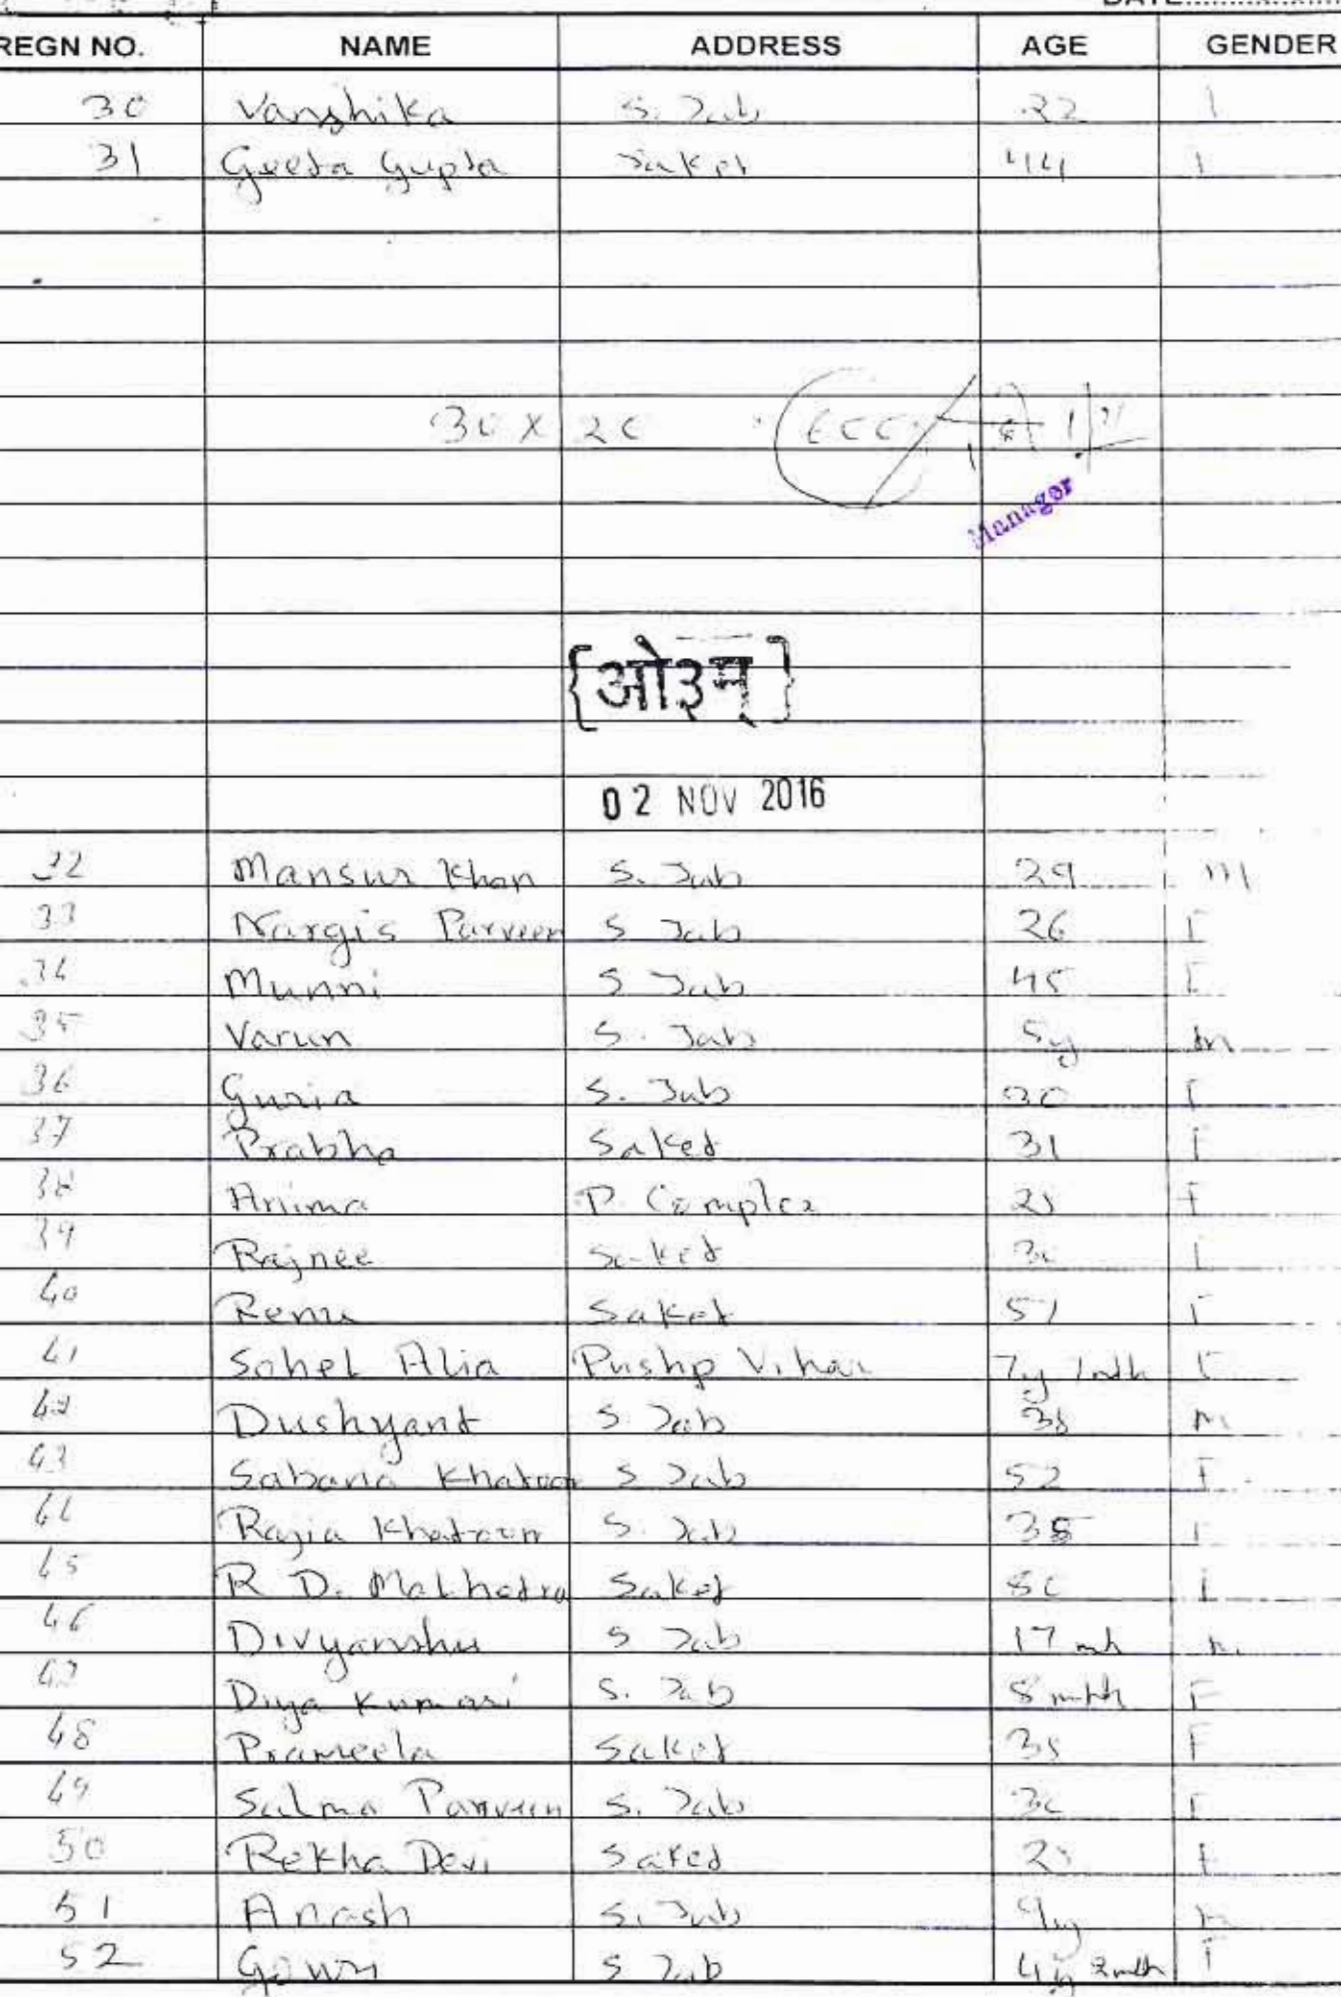 DATE
REGN NO. NAME ADDRESS AGE GENDER
30 Vanshika S. Jab 22
31 Geeta Gupta Saket 44
30 X 20
Manager
{ओ३म्}
02 NOV 2016
32 Mansur Khan S. Jab 29 M
33 Nargis Parveen S Jab 26 F
34 Munni S Jab 45 F
35 Varun S. Jab 5y m
36 Guria S. Jab 20 F
37 Prabha Saket 31 F
38 Anima P. Complex F
39 Rajnee Saket 30 F
40 Renu Saket F
41 Sohel Alia Pushp Vihar 7y F
42 Dushyant S. Jab 38 M
43 Sabana Khatoon S Jab 52 F
44 Rajia Khatoon S. Jab 38 F
45 R D. Malhotra Saket 80
46 Divyanshu S Jab 17 mth m
47 Diya Kumari S. Jab 8 mth F
48 Prameela Saket 35 F
49 Salma Parveen S. Jab 30 F
50 Rekha Devi Saket F
51 Anash S. Jab 9y m
52 Gowri S Jab 4y 2mth F